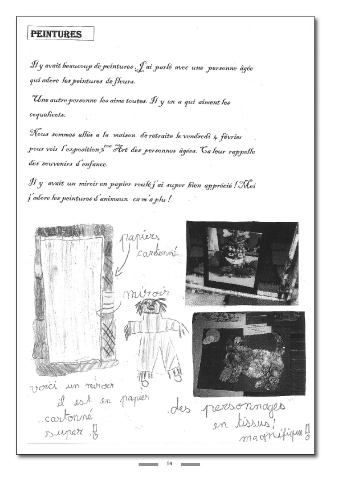 PEINTURES
Il y avait beaucoup de peintures. J'ai parlé avec une personne âgée
qui adore les peintures de fleurs.
Une autre personne les aime toutes. Il y en a qui aiment les
coquelicots.
Nous sommes allés a la maison de retraite le vendredi 4 février
pour voir l'exposition 3ème Art des personnes âgées. Ca leur rappelle
des souvenirs d'enfance.
Il y avait un miroir en papier roulé j'ai super bien apprécié ! Moi
j'adore les peintures d'animaux ca m'a plu !
papiers
cartonné
miroir
voici un miroir
il est en papier
cartonné
super !
des personnages
en tissus !
magnifique !